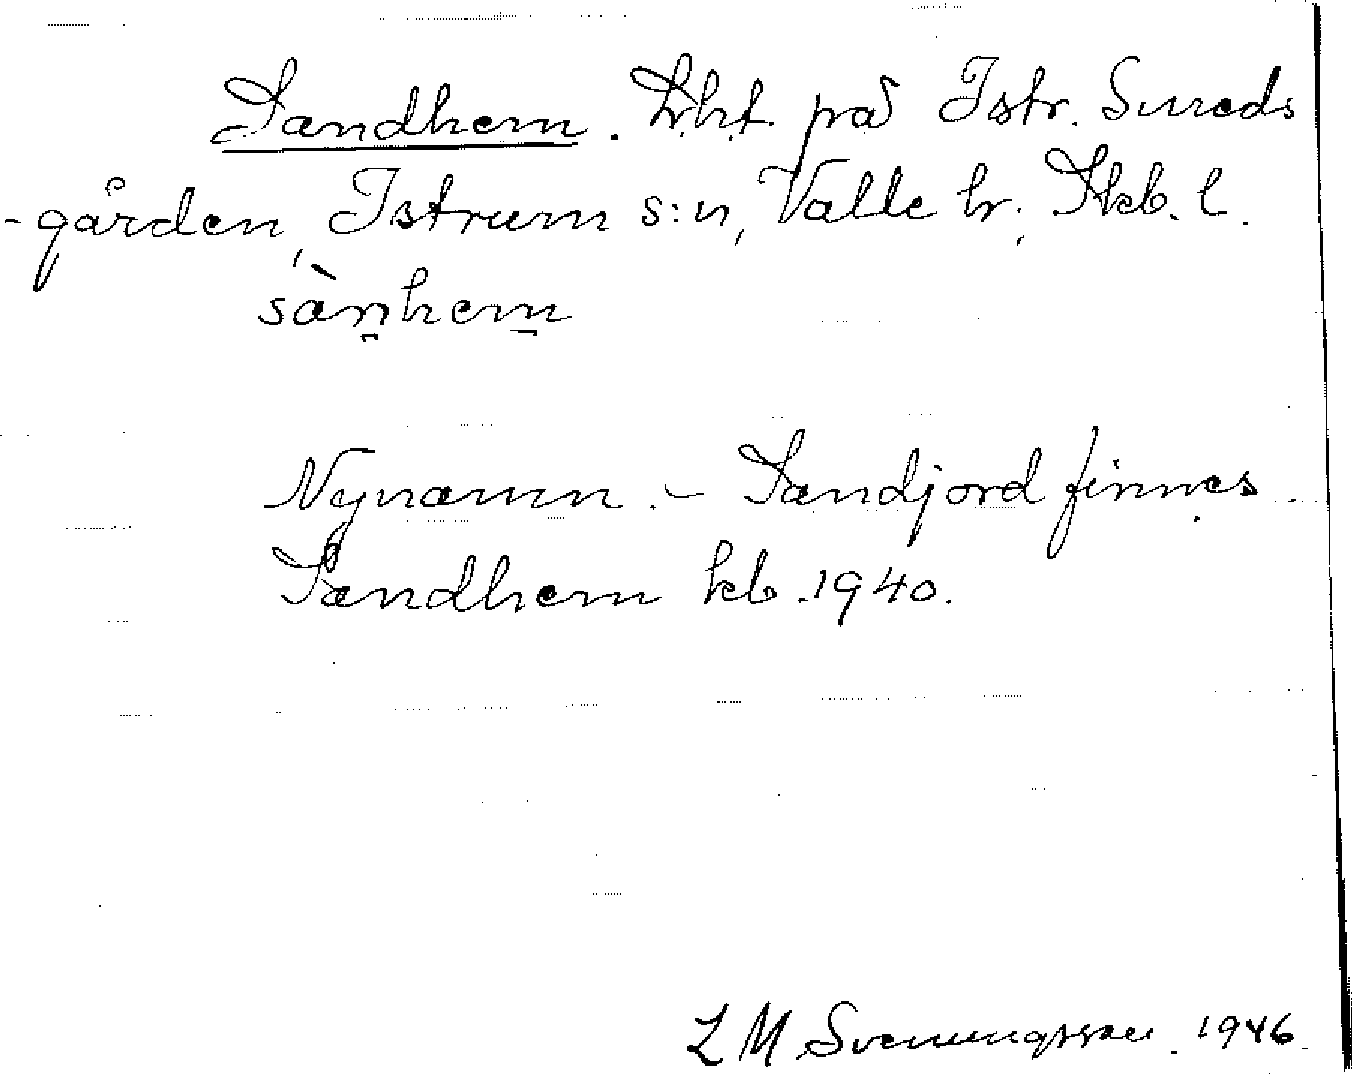 Sandhem. Lht. på Istr. Sureds
-gården, Istrum s:n, Valle hr. Skb. l.
sànhem
Nynamn. - Sandjord finnes
Sandhem kb. 1940.
L M Svenungsson. 1946